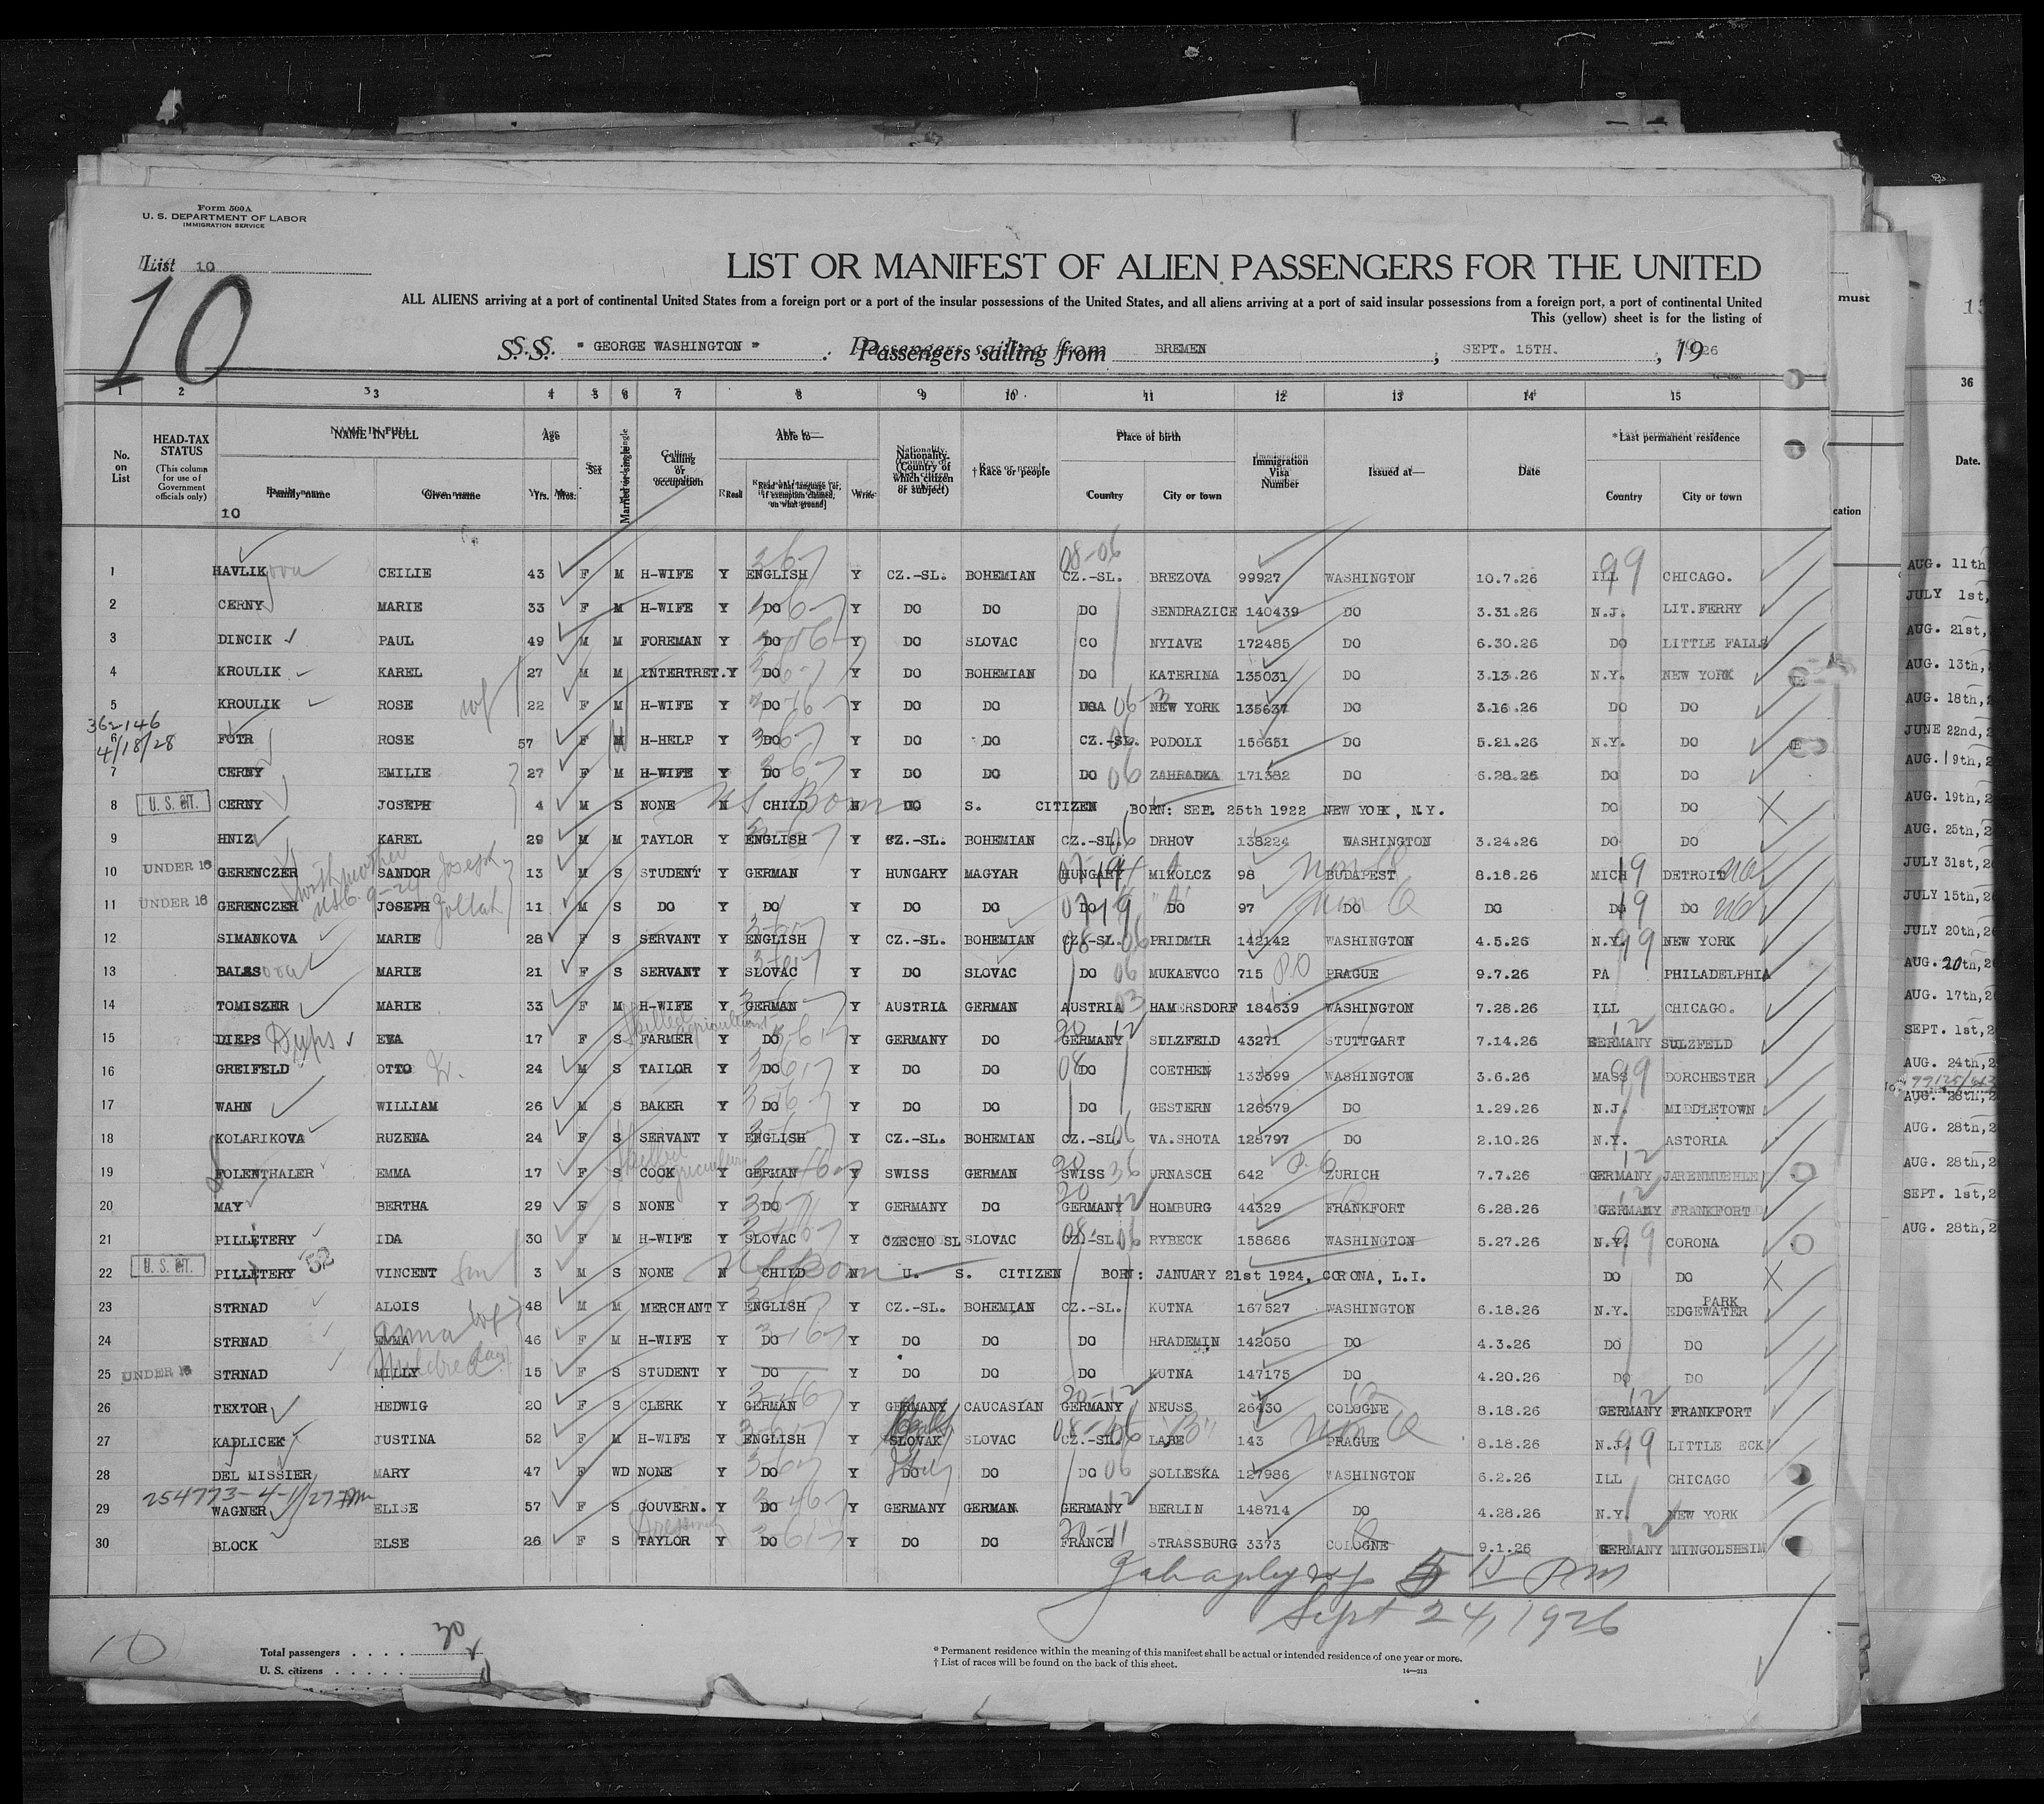 Form 500A
U. S. DEPARTMENT OF LABOR
IMMIGRATION SERVICE
List 10
10
LIST OR MANIFEST OF ALIEN PASSENGERS FOR THE UNITED
ALL ALIENS arriving at a port of continental United States from a foreign port or a port of the insular possessions of the United States, and all aliens arriving at a port of said insular possessions from a foreign port, a port of continental United
This (yellow) sheet is for the listing of
S. S. " GEORGE WASHINGTON " Passengers sailing from BREMEN, SEPT. 15TH., 1926
1 2 3 4 5 6 7 8 9 10 11 12 13 14 15
No. on List
HEAD-TAX STATUS (This column for use of Government officials only)
NAME IN FULL
Family name Given name
Age Yrs. Mos.
Sex
Married or single
Calling or occupation
Able to—
Read Read what language [or, if exemption claimed, on what ground] Write
Nationality. (Country of which citizen or subject)
† Race or people
Place of birth
Country City or town
Immigration Visa Number
Issued at—
Date
* Last permanent residence
Country City or town
10
1 HAVLIK ova CEILIE 43 F M H-WIFE Y ENGLISH Y CZ.-SL. BOHEMIAN CZ.-SL. BREZOVA 99927 WASHINGTON 10.7.26 ILL CHICAGO.
2 CERNY MARIE 33 F M H-WIFE Y DO Y DO DO DO SENDRAZICE 140439 DO 3.31.26 N.J. LIT.FERRY
3 DINCIK PAUL 49 M M FOREMAN Y DO Y DO SLOVAC CO NYIAVE 172485 DO 6.30.26 DO LITTLE FALLS
4 KROULIK KAREL 27 M M INTERTRET. Y DO Y DO BOHEMIAN DO KATERINA 135031 DO 3.13.26 N.Y. NEW YORK
5 KROULIK ROSE wf 22 F M H-WIFE Y DO Y DO DO USA NEW YORK 135637 DO 3.16.26 DO DO
362-146
4/18/28
6 FOTR ROSE 57 F M H-HELP Y DO Y DO DO CZ.-SL. PODOLI 156651 DO 5.21.26 N.Y. DO
7 CERNY EMILIE 27 F M H-WIFE Y DO Y DO DO DO ZAHRADKA 171382 DO 6.28.26 DO DO
8 U. S. CIT. CERNY JOSEPH 4 M S NONE N CHILD N U. S. CITIZEN BORN: SEP. 25th 1922 NEW YORK, N.Y. DO DO
US Born
9 HNIZ KAREL 29 M M TAYLOR Y ENGLISH Y CZ.-SL. BOHEMIAN CZ.-SL. DRHOV 138224 WASHINGTON 3.24.26 DO DO
10 UNDER 16 GERENCZER SANDOR Joseph 13 M S STUDENT Y GERMAN Y HUNGARY MAGYAR HUNGARY MIKOLCZ 98 BUDAPEST 8.18.26 MICH DETROIT
11 UNDER 16 GERENCZER JOSEPH 11 M S DO Y DO Y DO DO DO "A" DO 97 DO DO DO DO
12 SIMANKOVA MARIE 28 F S SERVANT Y ENGLISH Y CZ.-SL. BOHEMIAN CZ.-SL. PRIDMIR 142142 WASHINGTON 4.5.26 N.Y. NEW YORK
13 BALAS ova MARIE 21 F S SERVANT Y SLOVAC Y DO SLOVAC DO MUKAEVCO 715 PRAGUE 9.7.26 PA PHILADELPHIA
14 TOMISZER MARIE 33 F M H-WIFE Y GERMAN Y AUSTRIA GERMAN AUSTRIA HAMERSDORF 184639 WASHINGTON 7.28.26 ILL CHICAGO.
15 DIEPS EVA 17 F S FARMER Y DO Y GERMANY DO GERMANY SULZFELD 43271 STUTTGART 7.14.26 GERMANY SULZFELD
16 GREIFELD OTTO 24 M S TAILOR Y DO Y DO DO DO COETHEN 133599 WASHINGTON 3.6.26 MASS DORCHESTER
17 WAHN WILLIAM 26 M S BAKER Y DO Y DO DO DO GESTERN 126579 DO 1.29.26 N.J. MIDDLETOWN
18 KOLARIKOVA RUZENA 24 F S SERVANT Y ENGLISH Y CZ.-SL. BOHEMIAN CZ.-SL. VA.SHOTA 128797 DO 2.10.26 N.Y. ASTORIA
19 FOLENTHALER EMMA 17 F S COOK Y GERMAN Y SWISS GERMAN SWISS URNASCH 642 ZURICH 7.7.26 GERMANY JARENMUEHLE
20 MAY BERTHA 29 F S NONE Y DO Y GERMANY DO GERMANY HOMBURG 44329 FRANKFORT 6.28.26 GERMANY FRANKFORT
21 PILLETERY IDA 30 F M H-WIFE Y SLOVAC Y CZECHO SL SLOVAC CZ.-SL. RYBECK 158686 WASHINGTON 5.27.26 N.Y. CORONA
22 U. S. CIT. PILLETERY VINCENT Son 3 M S NONE N CHILD N U. S. CITIZEN BORN: JANUARY 21st 1924, CORONA, L.I. DO DO
US Born
23 STRNAD ALOIS 48 M M MERCHANT Y ENGLISH Y CZ.-SL. BOHEMIAN CZ.-SL. KUTNA 167527 WASHINGTON 6.18.26 N.Y. EDGEWATER PARK
24 STRNAD EMMA Anna wf 46 F M H-WIFE Y DO Y DO DO DO HRADEMIN 142050 DO 4.3.26 DO DO
25 UNDER 16 STRNAD MILLY Mildred 15 F S STUDENT Y DO Y DO DO DO KUTNA 147175 DO 4.20.26 DO DO
26 TEXTOR HEDWIG 20 F S CLERK Y GERMAN Y GERMANY CAUCASIAN GERMANY NEUSS 26430 COLOGNE 8.18.26 GERMANY FRANKFORT
27 KADLICEK JUSTINA 52 F M H-WIFE Y ENGLISH Y SLOVAK SLOVAC CZ.-SL. LABE "B" 143 PRAGUE 8.18.26 N.J. LITTLE ECK
28 DEL MISSIER MARY 47 F WD NONE Y DO Y DO DO DO SOLLESKA 127986 WASHINGTON 6.2.26 ILL CHICAGO
254773-4-1/27
29 WAGNER ELISE 57 F S GOUVERN. Y DO Y GERMANY GERMAN GERMANY BERLIN 148714 DO 4.28.26 N.Y. NEW YORK
30 BLOCK ELSE 26 F S TAYLOR Y DO Y DO DO FRANCE STRASSBURG 3373 COLOGNE 9.1.26 GERMANY MINGOLSHEIM
5 15 PM
Sept 24, 1926
10
Total passengers . . . . 30
U. S. citizens . . . . .
* Permanent residence within the meaning of this manifest shall be actual or intended residence of one year or more.
† List of races will be found on the back of this sheet.
14—213
must
cation
36
Date.
AUG. 11th
JULY 1st,
AUG. 21st,
AUG. 13th,
AUG. 18th,
JUNE 22nd,
AUG. 19th,
AUG. 19th,
AUG. 25th,
JULY 31st,
JULY 15th,
JULY 20th,
AUG. 20th,
AUG. 17th,
SEPT. 1st,
AUG. 24th,
AUG. 28th,
AUG. 28th,
AUG. 28th,
SEPT. 1st,
AUG. 28th,